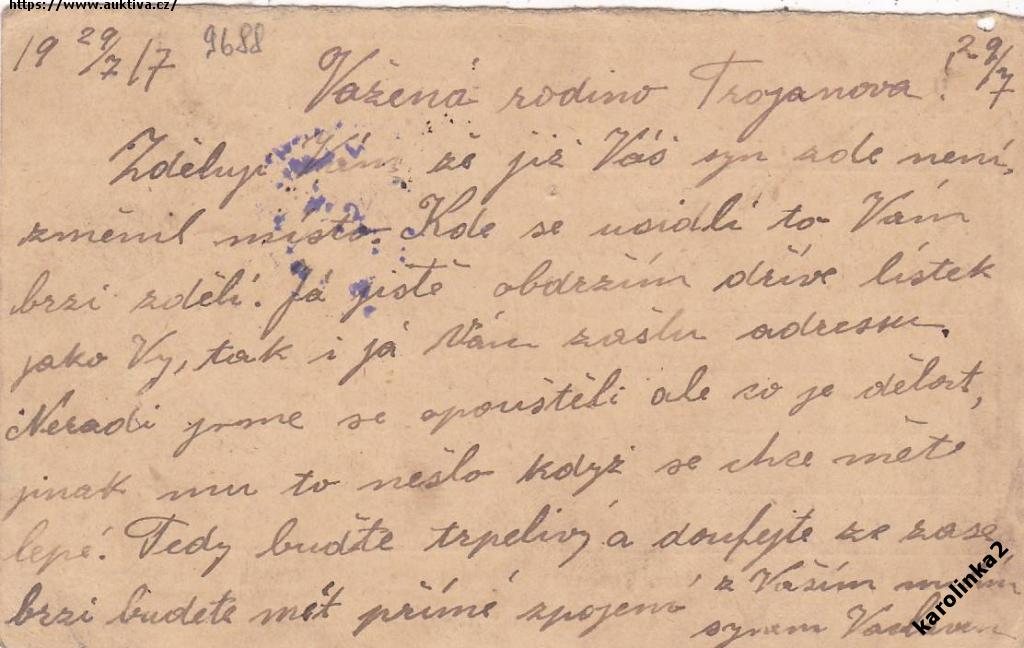 https://www.auktiva.cz/
19 29/7 17 9688 29/7
Vážená rodino Trojanova!
Zděluji Vám že již Váš syn zde není,
změnil místo. Kde se usidlí to Vám
brzi zdělí. Já jistě obdržím dříve lístek
jako Vy, tak i já Vám zašlu adressu.
Neradi jsme se opouštěli ale co je dělat,
jinak mu to nešlo když se chce mět
lepé. Tedy buďte trpelivý a doufejte ze zase
brzi budete mět přímé zpojení z Vaším
synem
karolinka2